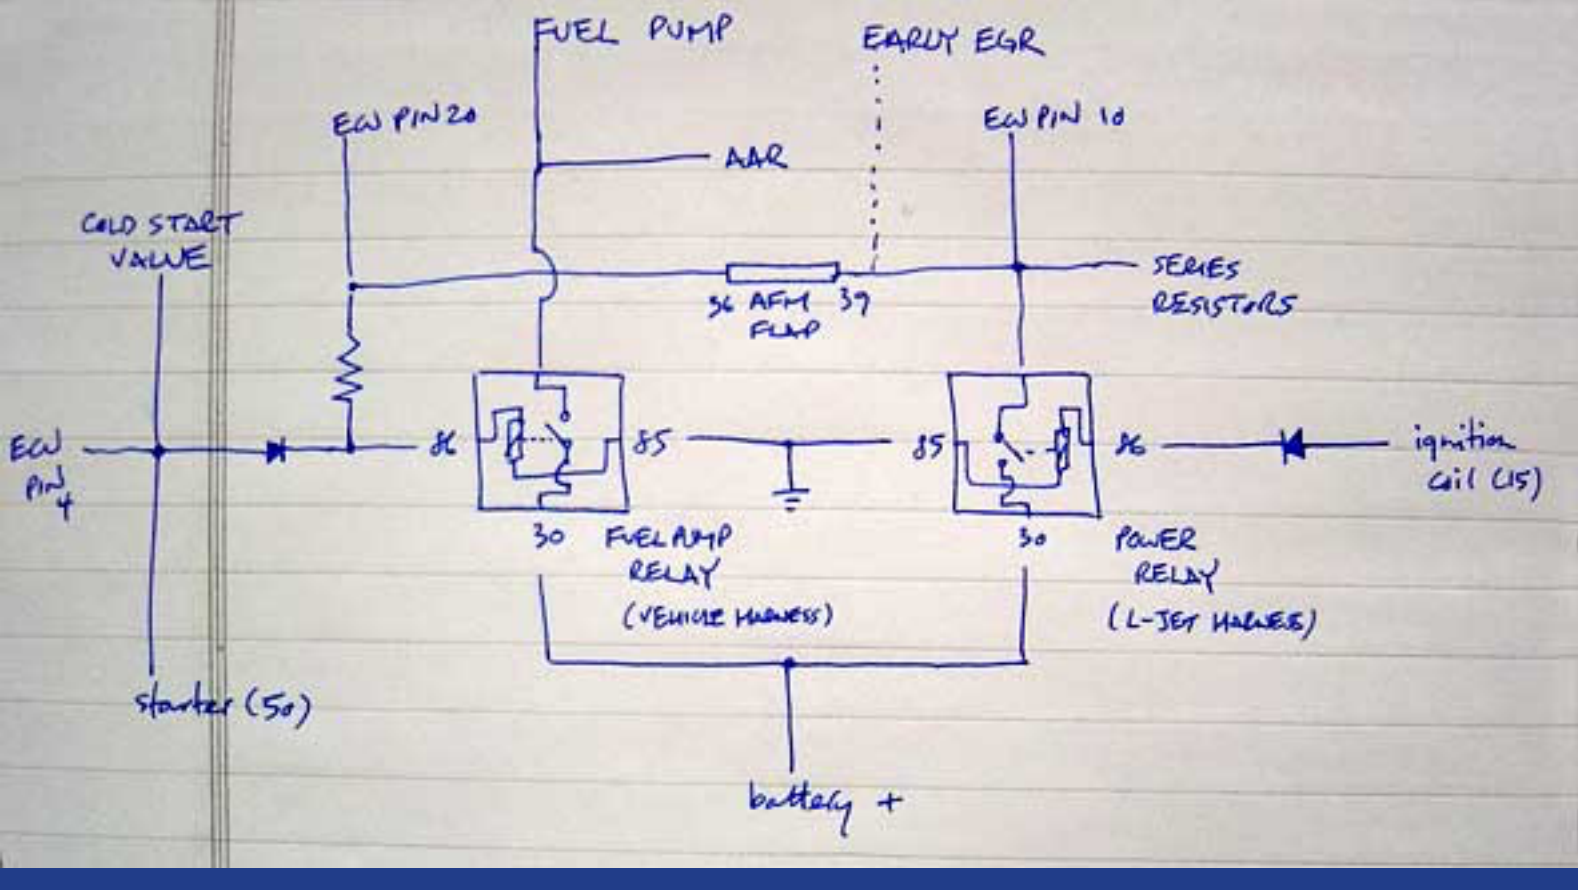 FUEL PUMP
EARLY EGR
ECU PIN 20
ECU PIN 10
AAR
COLD START
VALVE
SERIES
RESISTORS
36 AFM 39
FLAP
ECU
PIN
4
86
85
85
86
ignition
coil (15)
30
FUEL PUMP
RELAY
(VEHICLE HARNESS)
30
POWER
RELAY
(L-JET HARNESS)
starter (50)
battery +